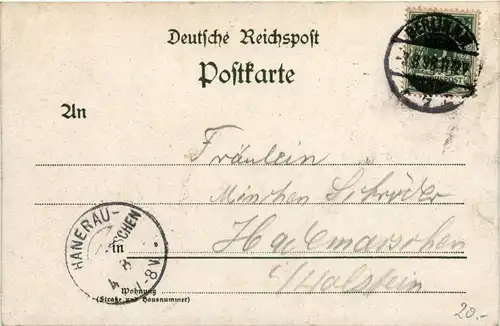 Deutsche Reichspost
Postkarte
BERLIN
An
Fräulein
Minchen Schröder
HANERAU-
in
Hademarschen
i/Holstein
Wohnung
(Straße und Hausnummer)
20.-